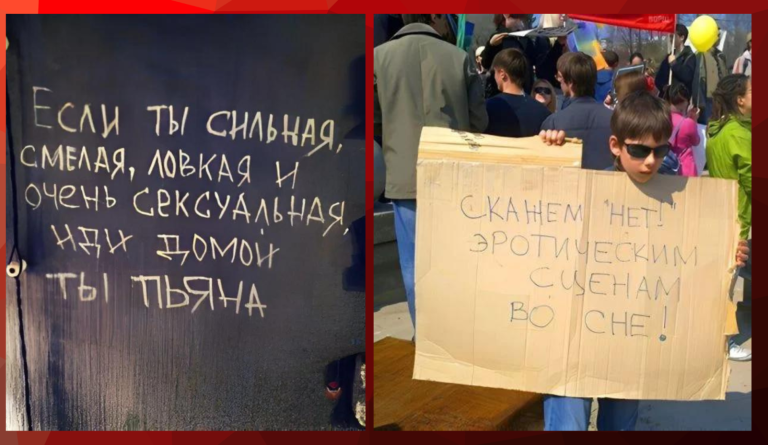 Если ты сильная,
смелая, ловкая и
очень сексуальная,
иди домой
ты пьяна
СКАЖЕМ "НЕТ!"
ЭРОТИЧЕСКИМ
СЦЕНАМ
ВО СНЕ!